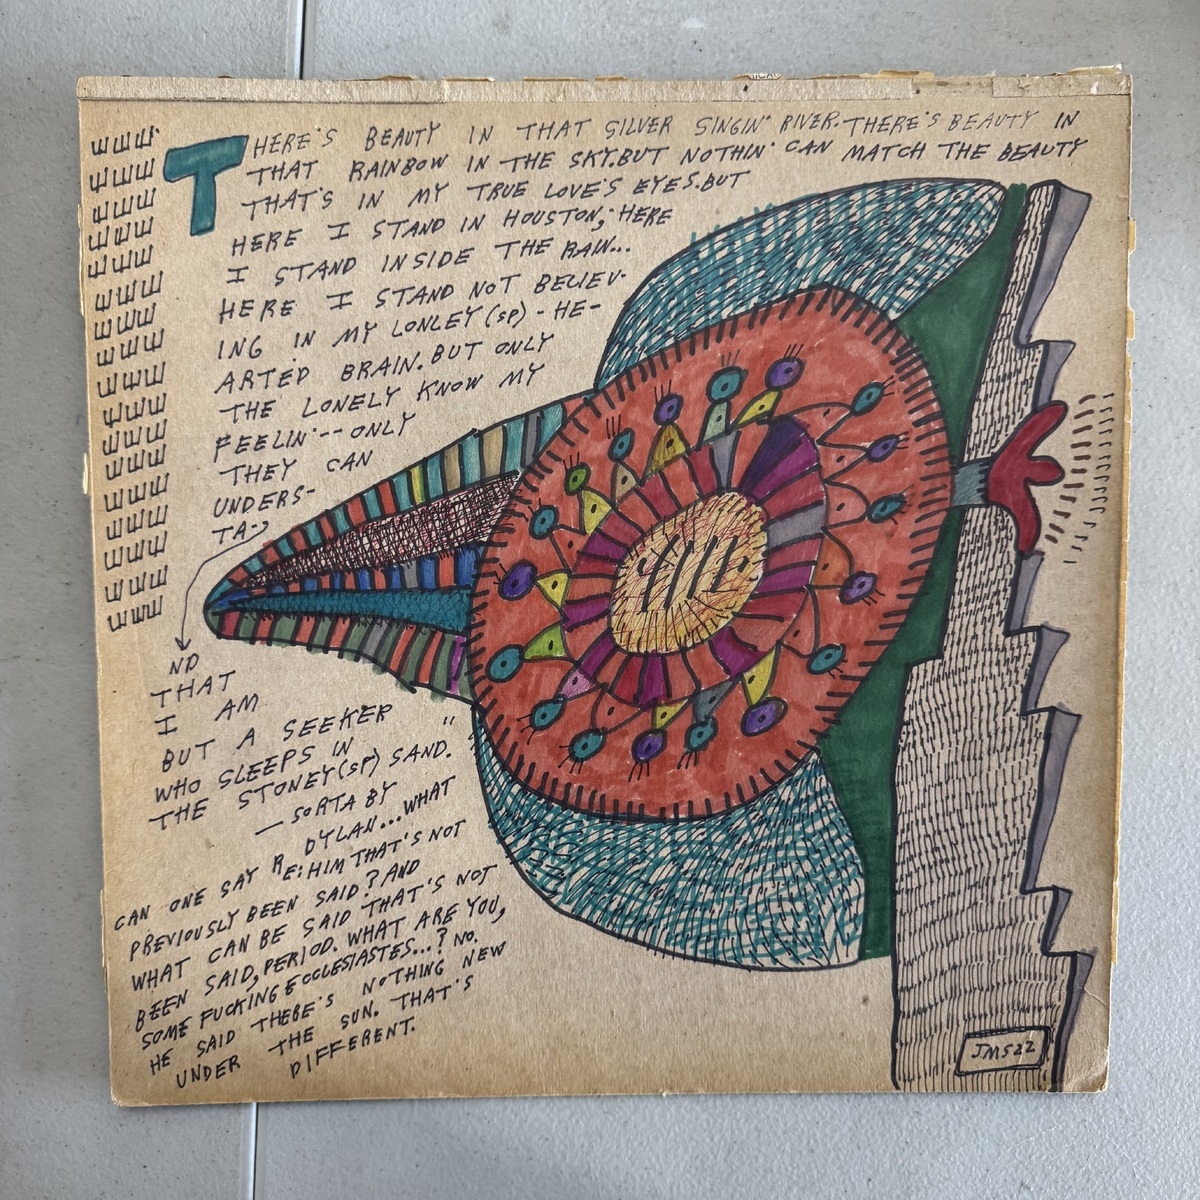 THERE'S BEAUTY IN THAT SILVER SINGIN' RIVER. THERE'S BEAUTY IN
THAT RAINBOW IN THE SKY. BUT NOTHIN' CAN MATCH THE BEAUTY
THAT'S IN MY TRUE LOVE'S EYES. BUT
HERE I STAND IN HOUSTON; HERE
I STAND INSIDE THE RAIN...
HERE I STAND NOT BELIEV-
ING IN MY LONLEY (SP) - HE-
ARTED BRAIN. BUT ONLY
THE LONELY KNOW MY
FEELIN' -- ONLY
THEY CAN
UNDERS-
TA->
ND
THAT
I AM
BUT A SEEKER
WHO SLEEPS IN
THE STONEY (SP) SAND."
— SORTA BY
DYLAN... WHAT
CAN ONE SAY RE: HIM THAT'S NOT
PREVIOUSLY BEEN SAID? AND
WHAT CAN BE SAID THAT'S NOT
BEEN SAID, PERIOD. WHAT ARE YOU,
SOME FUCKING ECCLESIASTES...? NO.
HE SAID THERE'S NOTHING NEW
UNDER THE SUN. THAT'S
DIFFERENT.
JMS22